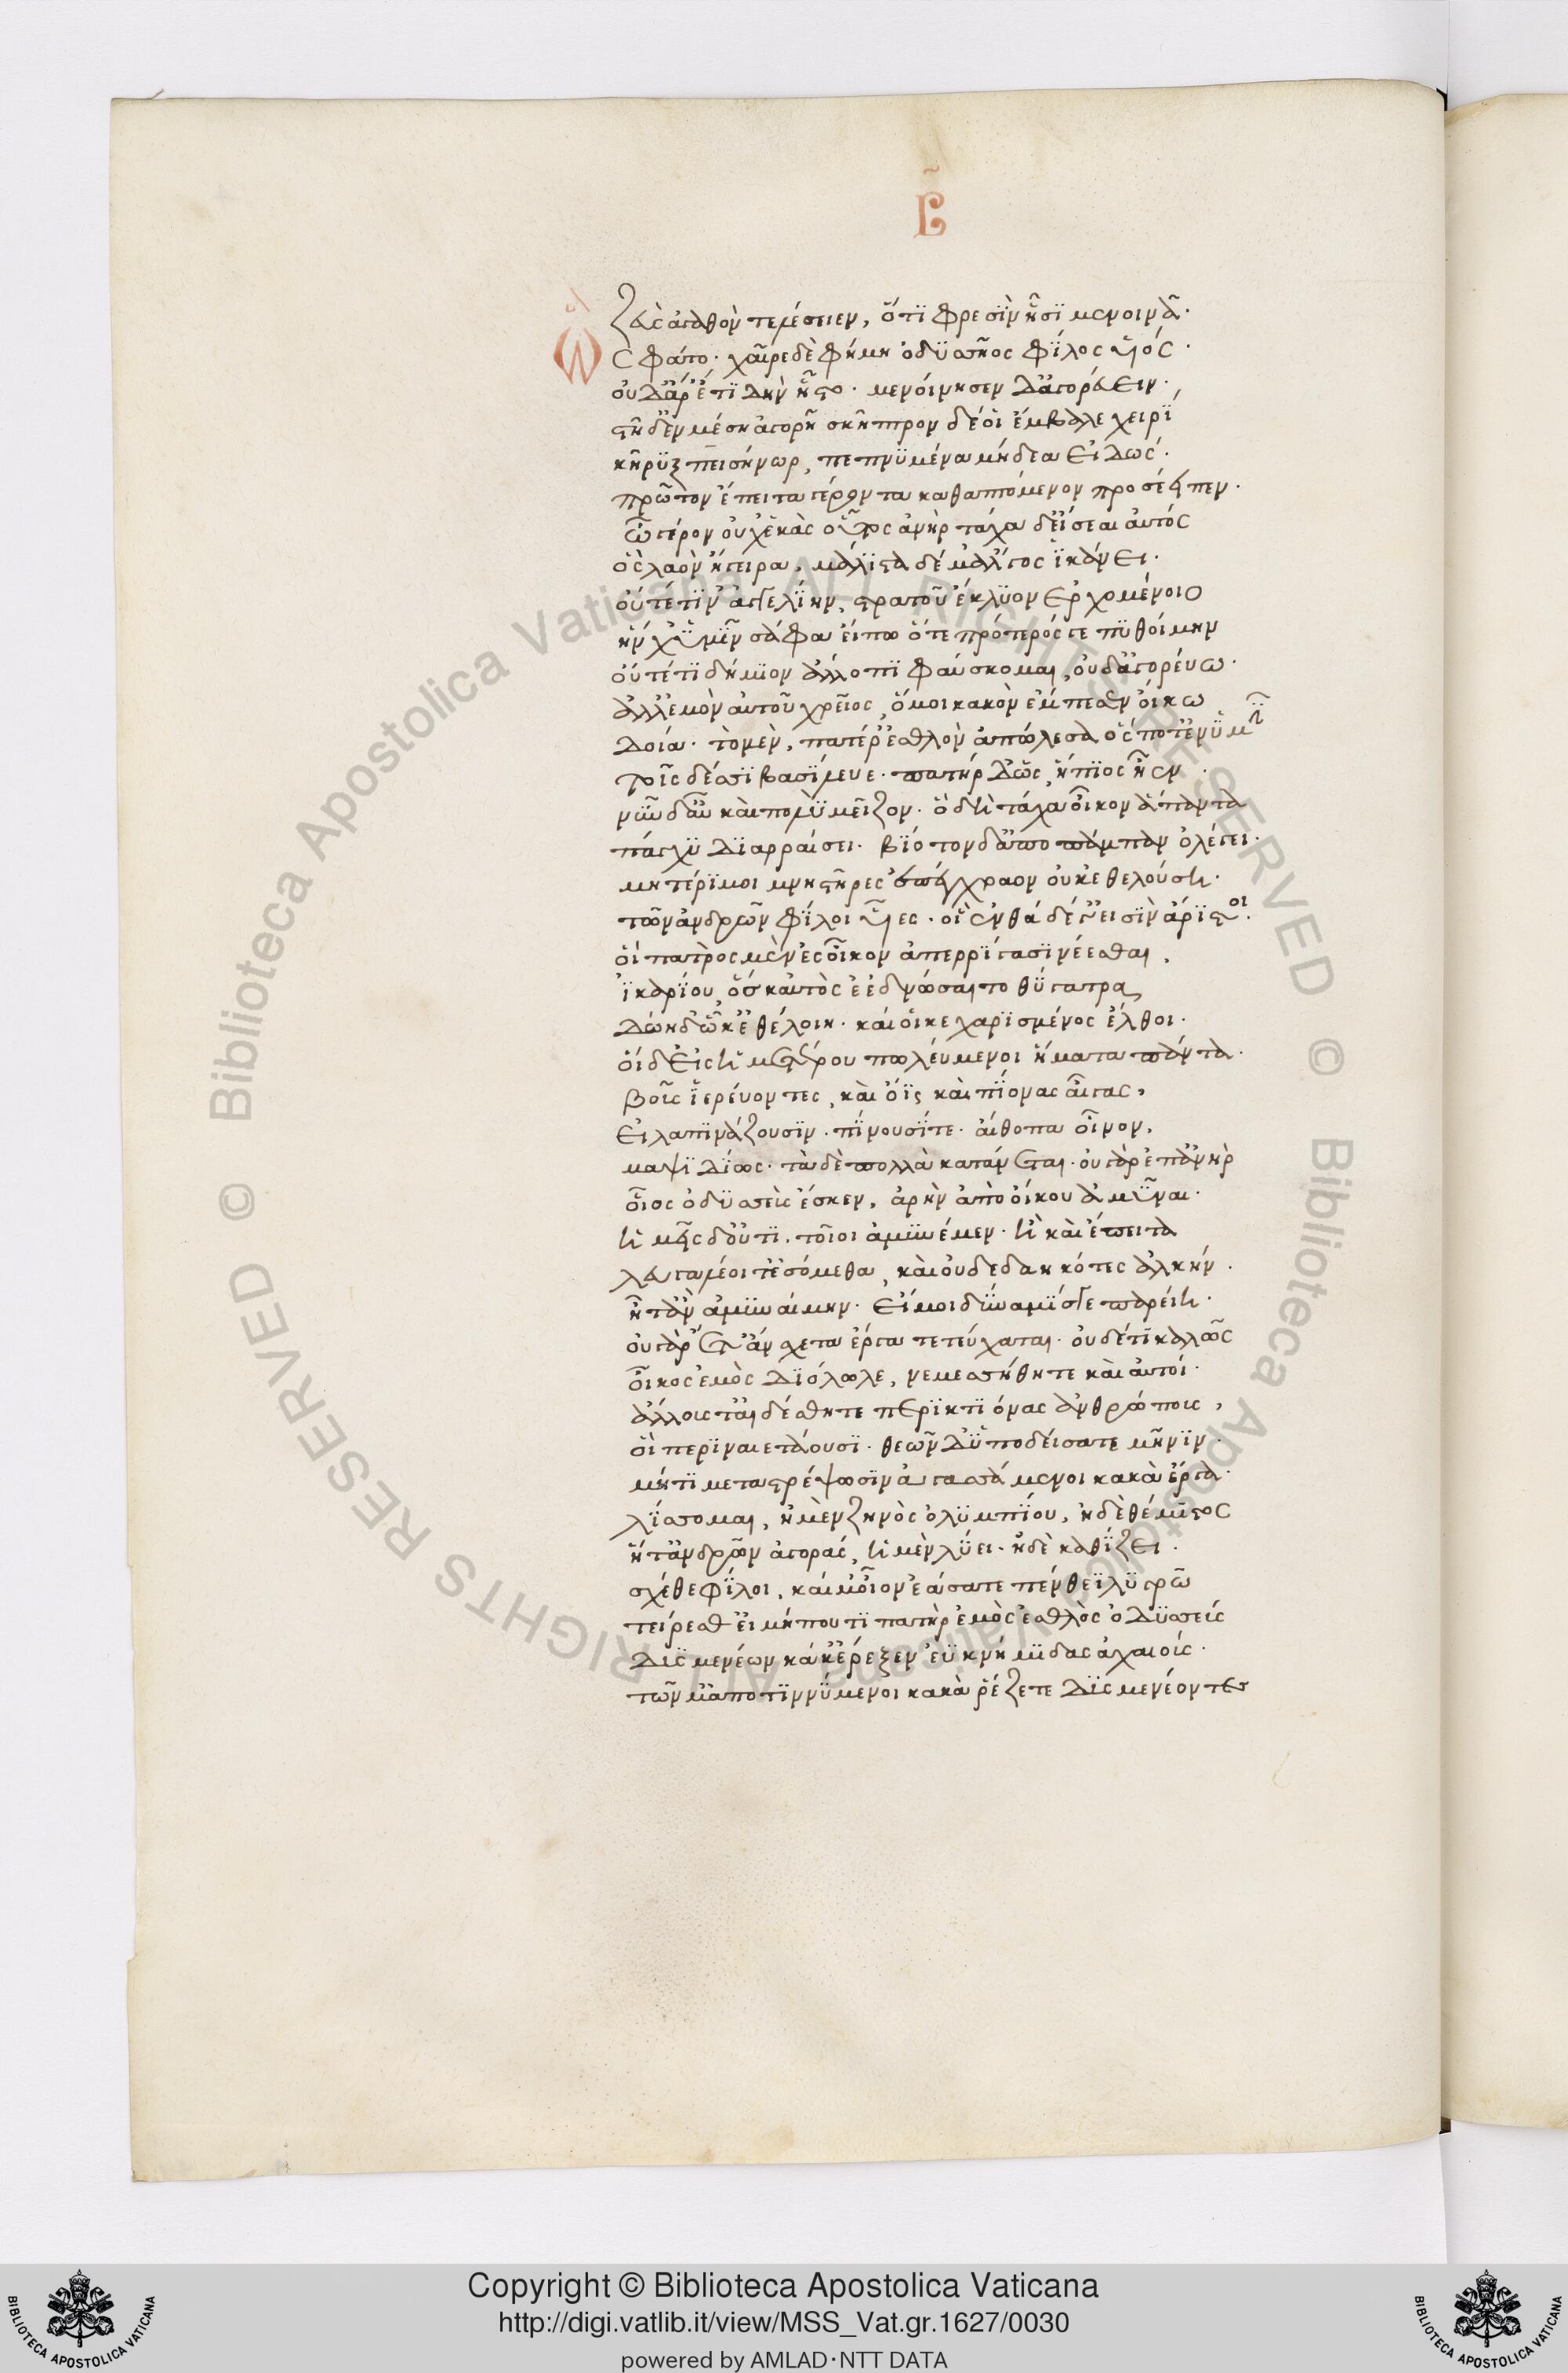 β̃
ζεὺς ἀγαθὸν τελέσειεν, ὅτϊ φρεσὶν ᾗσϊ μενοινᾷ·
Ὣς φάτο· χαῖρε δὲ φήμη ὀδϋσσῆος φίλος υἱός·
οὐδ' ἄρ' ἔτϊ δὴν ἧστο· μενοίνησεν δ' ἀγορεύειν·
στῆ δ' ἐν μέση ἀγορῆ σκῆπτρον δέ οἱ ἔμβαλε χειρϊ
κῆρυξ πεισήνωρ, πεπνϋμένα μήδεα εἰδώς·
πρῶτον ἔπειτα γέροντα καθαπτόμενος προσέειπεν·
ὦ γέρον οὐχ ἑκὰς οὗτος ἀνὴρ τάχα δ' εἴσεαι αὐτός
ὃς λαὸν ἤγειρα, μάλϊστα δέ μ' ἄλγος ἱκάνει·
οὔτέ τϊν' ἀγγελίην, στρατοῦ ἔκλϋον ἐρχομένοιο
ἥν χ' ὑμῖν σάφα εἴπω ὅτε πρότερός γε πϋθοίμην
οὔτέ τϊ δήμϊον ἄλλο πϊφαύσκομαι, οὐδ' ἀγορεύω·
ἀλλ' ἐμὸν αὐτοῦ χρεῖος, ὅ μοι κακὸν ἔμπεσεν οἴκω
δοιά· τὸ μὲν, πατέρ' ἐσθλὸν ἀπώλεσα ὅς ποτ' ἐν ὑμῖν
τοῖςδέσσϊ βασίλευε· πατὴρ δ' ὣς, ἤπϊος ἦεν·
νῦν δ' αὖ καὶ πολὺ μεῖζον· ὃ δὴ τάχα οἶκον ἅπαντα
πάγχϋ δϊαρραίσει· βϊότον δ' ἄπο πάμπαν ὀλέσει·
μητέρϊ μοι μνηστῆρες ἐπέχραον οὐκ ἐθελούση·
τῶν ἀνδρῶν φίλοι υἷες· οἳ ἐνθάδε γ' εἰσϊν ἄρϊστοι·
οἳ πατρὸς μὲν ἐς οἶκον ἀπερρίγασϊ νέεσθαι,
ἰκαρϊου, ὅς κ' αὐτὸς ἐεδνώσαιτο θύγατρα
δώη δ' ᾧ κ' ἐθέλοιη· καί οἵ κεχαρϊσμένος ἔλθοι·
οἱ δ' εἰς ἡμετέρου πωλεύμενοι ἤματα πάντα·
βοῦς ἱερεύοντες, καὶ ὄϊς καὶ πίονας αἶγας,
εἰλαπϊνάζουσϊν· πίνουσί τε· αἴθοπα οἶνον,
μαψϊδίως· τὰ δὲ πολλὰ κατάνεται· οὐ γὰρ ἔπ' ἀνὴρ
οἷος ὀδϋσσεὺς ἔσκεν, ἀρὴν ἀπὸ οἴκου ἀμῦναι·
ἡμεῖς δ' οὔτϊ, τοῖοι ἀμϋνέμεν· ἦ καὶ ἔπειτα
λευγαλέοι τ' ἐσόμεθα, καὶ οὐ δεδαηκότες ἀλκήν·
ἦ τ' ἂν ἀμϋναίμην· εἴ μοι δύναμϊς γε παρείη·
οὐ γὰρ ἔτ' ἄνσχετα ἔργα τετεύχαται· οὐδέ τϊ καλῶς
οἶκος ἐμὸς δϊόλωλε, νεμεσσήθητε καὶ αὐτοί·
ἄλλοις τ' αἰδέσθητε περϊκτϊόνας ἀνθρώποις,
οἳ περϊναιετάουσϊ· θεῶν δ' ὑποδείσατε μῆνϊν·
μήτϊ μεταστρέψωσϊν ἀγασσάμενοι κακὰ ἔργα·
λίσσομαι, ἠμὲν ζηνὸς ὀλϋμπίου, ἠδὲ θέμϊστος
ἥ τ' ἀνδρῶν ἀγορὰς, ἠμὲν λύει· ἠδὲ καθίζει·
σχέθε φίλοι, καί μ' οἶον ἐάσατε πένθεϊ λϋγρῶ
τείρεσθ' εἰ μή που τϊ πατὴρ ἐμὸς ἐσθλὸς ὀδϋσσεύς
δϋςμενέων κάκ' ἔρεξεν ἐϋκνήμϊδας ἀχαιούς·
τῶν μ' ἀποτϊννύμενοι κακὰ ῥέζετε δϋςμενέοντες
Copyright © Biblioteca Apostolica Vaticana
http://digi.vatlib.it/view/MSS_Vat.gr.1627/0030
powered by AMLAD·NTT DATA